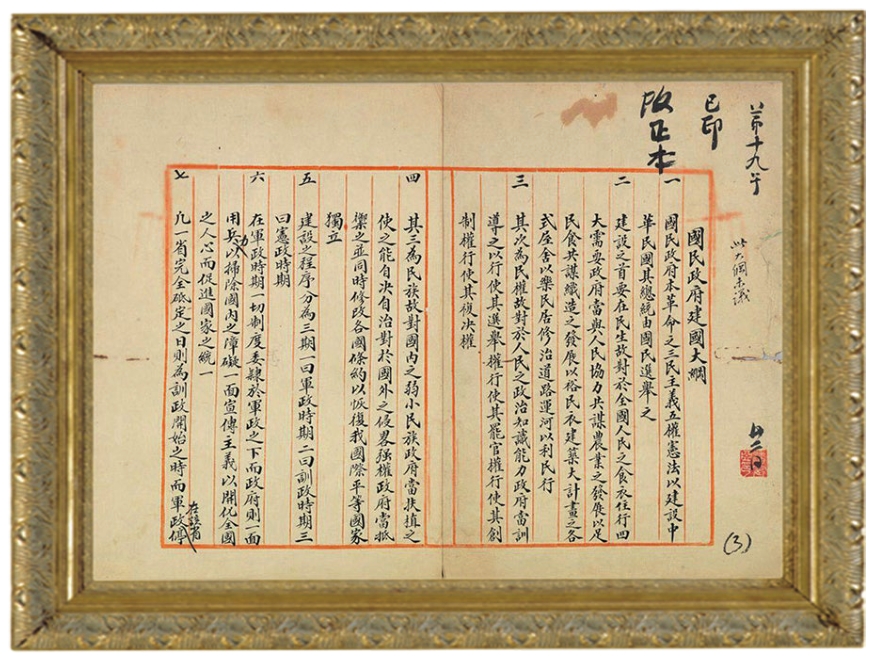 第十九
已印
改正本
國民政府建國大綱
一 國民政府本革命之三民主義五權憲法以建設中
華民國其總統由國民選舉之
二 建設之首要在民生故對於全國人民之食衣住行四
大需要政府當與人民協力共謀農業之發展以足
民食共謀織造之發展以裕民衣建築大計畫之各
式屋舍以樂民居修治道路運河以利民行
三 其次為民權故對於人民之政治知識能力政府當訓
導之以行使其選舉權行使其罷官權行使其創
制權行使其複決權
四 其三為民族故對國內之弱小民族政府當扶植之
使之能自決自治對於國外之侵畧強權政府當抵
禦之並同時修改各國條約以恢復我國際平等國家
獨立
五 建設之程序分為三期一曰軍政時期二曰訓政時期三
曰憲政時期
六 在軍政時期一切制度隸於軍政之下而政府則一面
用兵力以掃除國內之障礙一面宣傳主義以開化全國
之人心而促進國家之統一
七 凡一省完全砥定之日則為訓政開始之時而軍政
在該省
(3)